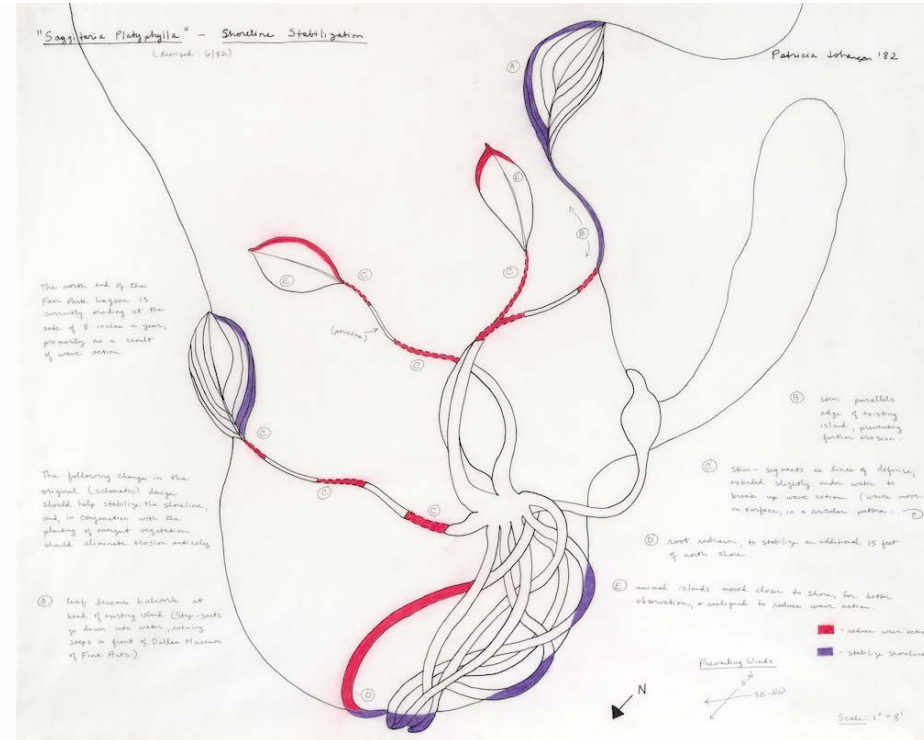 "Saggitaria Platyphylla" – Shoreline Stabilization
(revised: 6/82)
Patricia Johanson '82
A
E
B
C
E
C
(process)
C
C
C
C
D
The north end of the
Fair Park Lagoon is
currently eroding at the
rate of 8 inches a year,
primarily as a result
of wave action.
The following changes in the
original (schematic) design
should help stabilize the shoreline,
and, in conjunction with the
planting of emergent vegetation
should eliminate erosion entirely
A leaf becomes bulwark at
head of existing island (Step-seats
go down into water, echoing
steps in front of Dallas Museum
of Fine Arts.)
B stem parallels
edge of existing
island, preventing
further erosion.
C stem-segments as lines of defense,
extended slightly under water to
break up wave action (waves move
on surface, in a circular pattern:
D root redrawn, to stabilize an additional 15 feet
of north shore.
E animal islands moved closer to shore, for better
observation, + realigned to reduce wave action.
- reduce wave action
- stabilize shoreline
Prevailing Winds
S-N
SE-NW
N
Scale: 1" = 8'